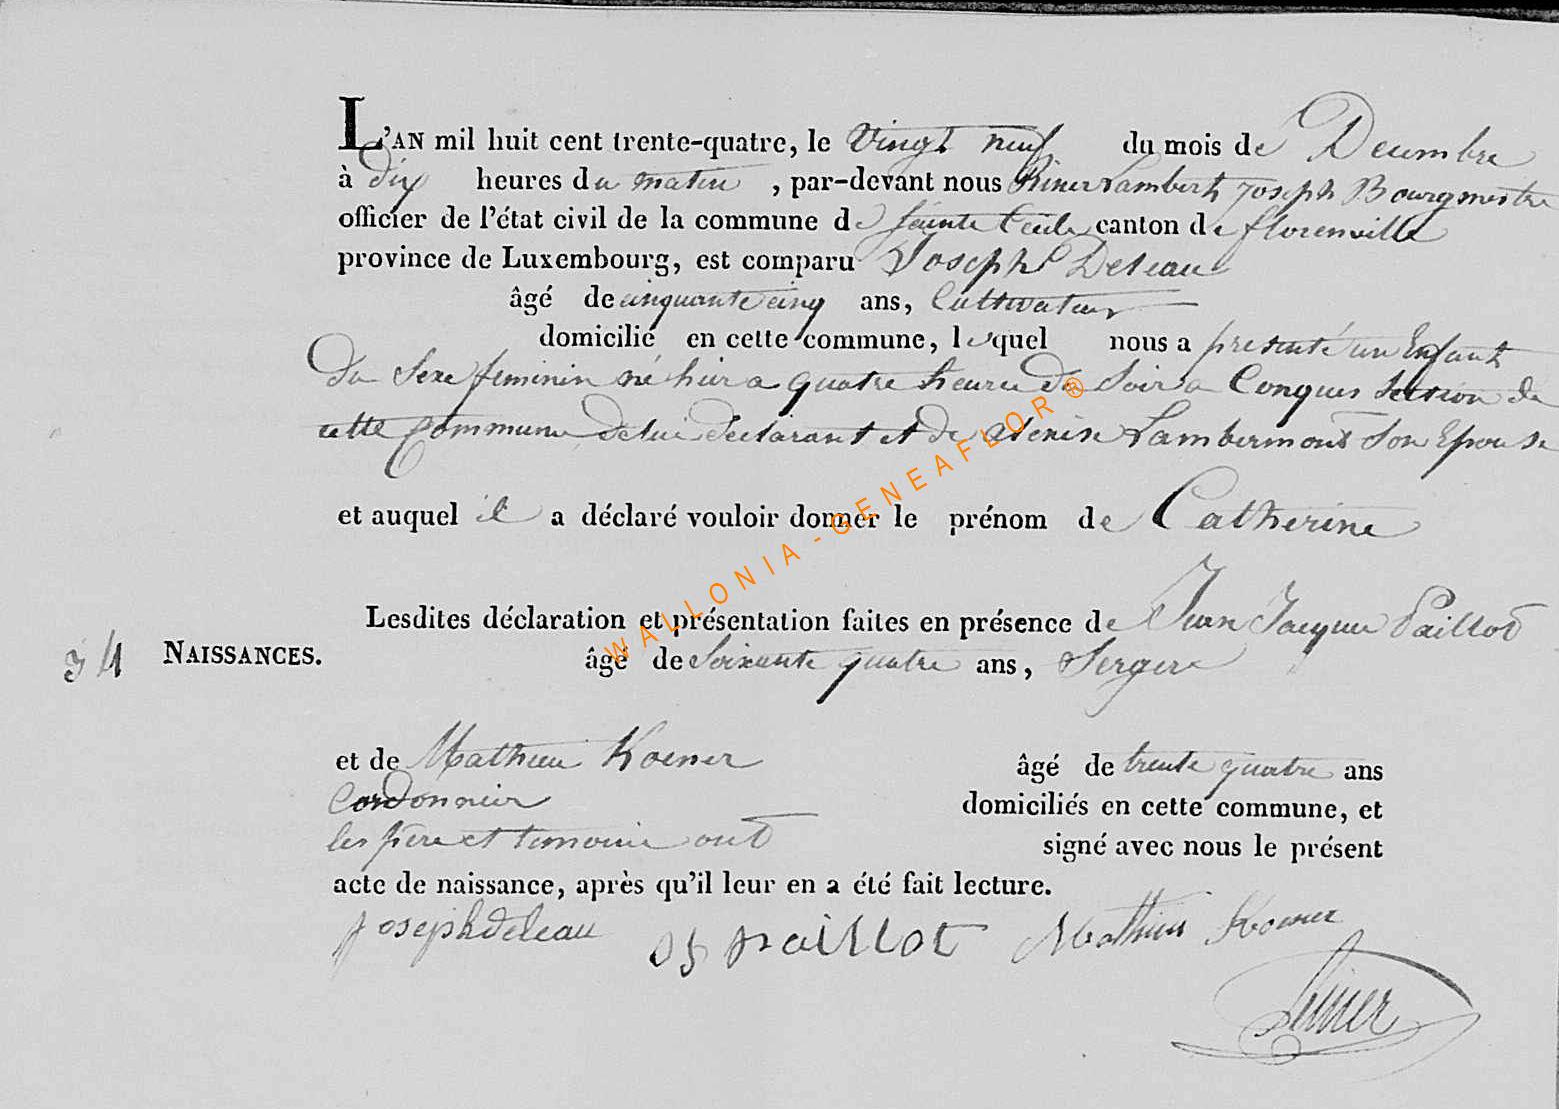 L'AN mil huit cent trente-quatre, le vingt neuf du mois de Decembre
à dix heures du matin, par-devant nous Riner Lambert Joseph Bourgmestre
officier de l'état civil de la commune de Sainte Cécile canton de florenville
province de Luxembourg, est comparu Joseph Deleau
âgé de cinquante cinq ans, Cultivateur
domicilié en cette commune, lequel nous a presenté un Enfant
du Sexe feminin né hier a quatre heures du Soir a Conques Section de
cette Commune de lui déclarant et de Lambermont Son Epouse
et auquel il a déclaré vouloir donner le prénom de Catherine
Lesdites déclaration et présentation faites en présence de Jean Jacques Paillot
34 NAISSANCES.
âgé de Soixante quatre ans, Serger
et de Mathieu Koener âgé de trente quatre ans
Cordonnier domiciliés en cette commune, et
les père et temoins ont signé avec nous le présent
acte de naissance, après qu'il leur en a été fait lecture.
joseph deleau paillot Mathieu Koener
Riner
WALLONIA-GENEAFLOR®